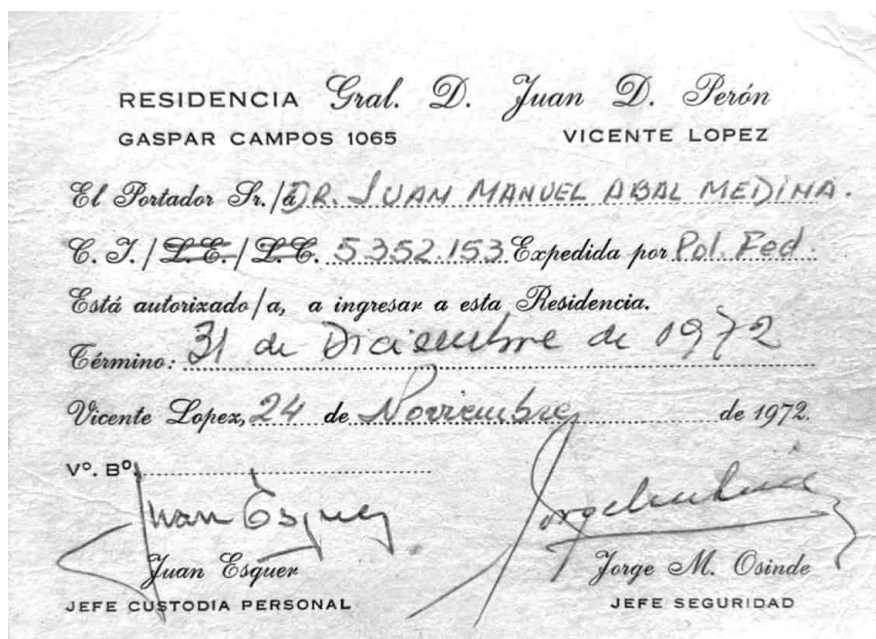 RESIDENCIA Gral. D. Juan D. Perón
GASPAR CAMPOS 1065 VICENTE LOPEZ
El Portador Sr./a DR. JUAN MANUEL ABAL MEDINA.
C. I./L.E./L.C. 5352.153 Expedida por Pol. Fed.
Está autorizado/a, a ingresar a esta Residencia.
Término: 31 de Diciembre de 1972
Vicente Lopez, 24 de Noviembre de 1972.
Vº. Bº.
Juan Esquer
Juan Esquer Jorge M. Osinde
JEFE CUSTODIA PERSONAL JEFE SEGURIDAD